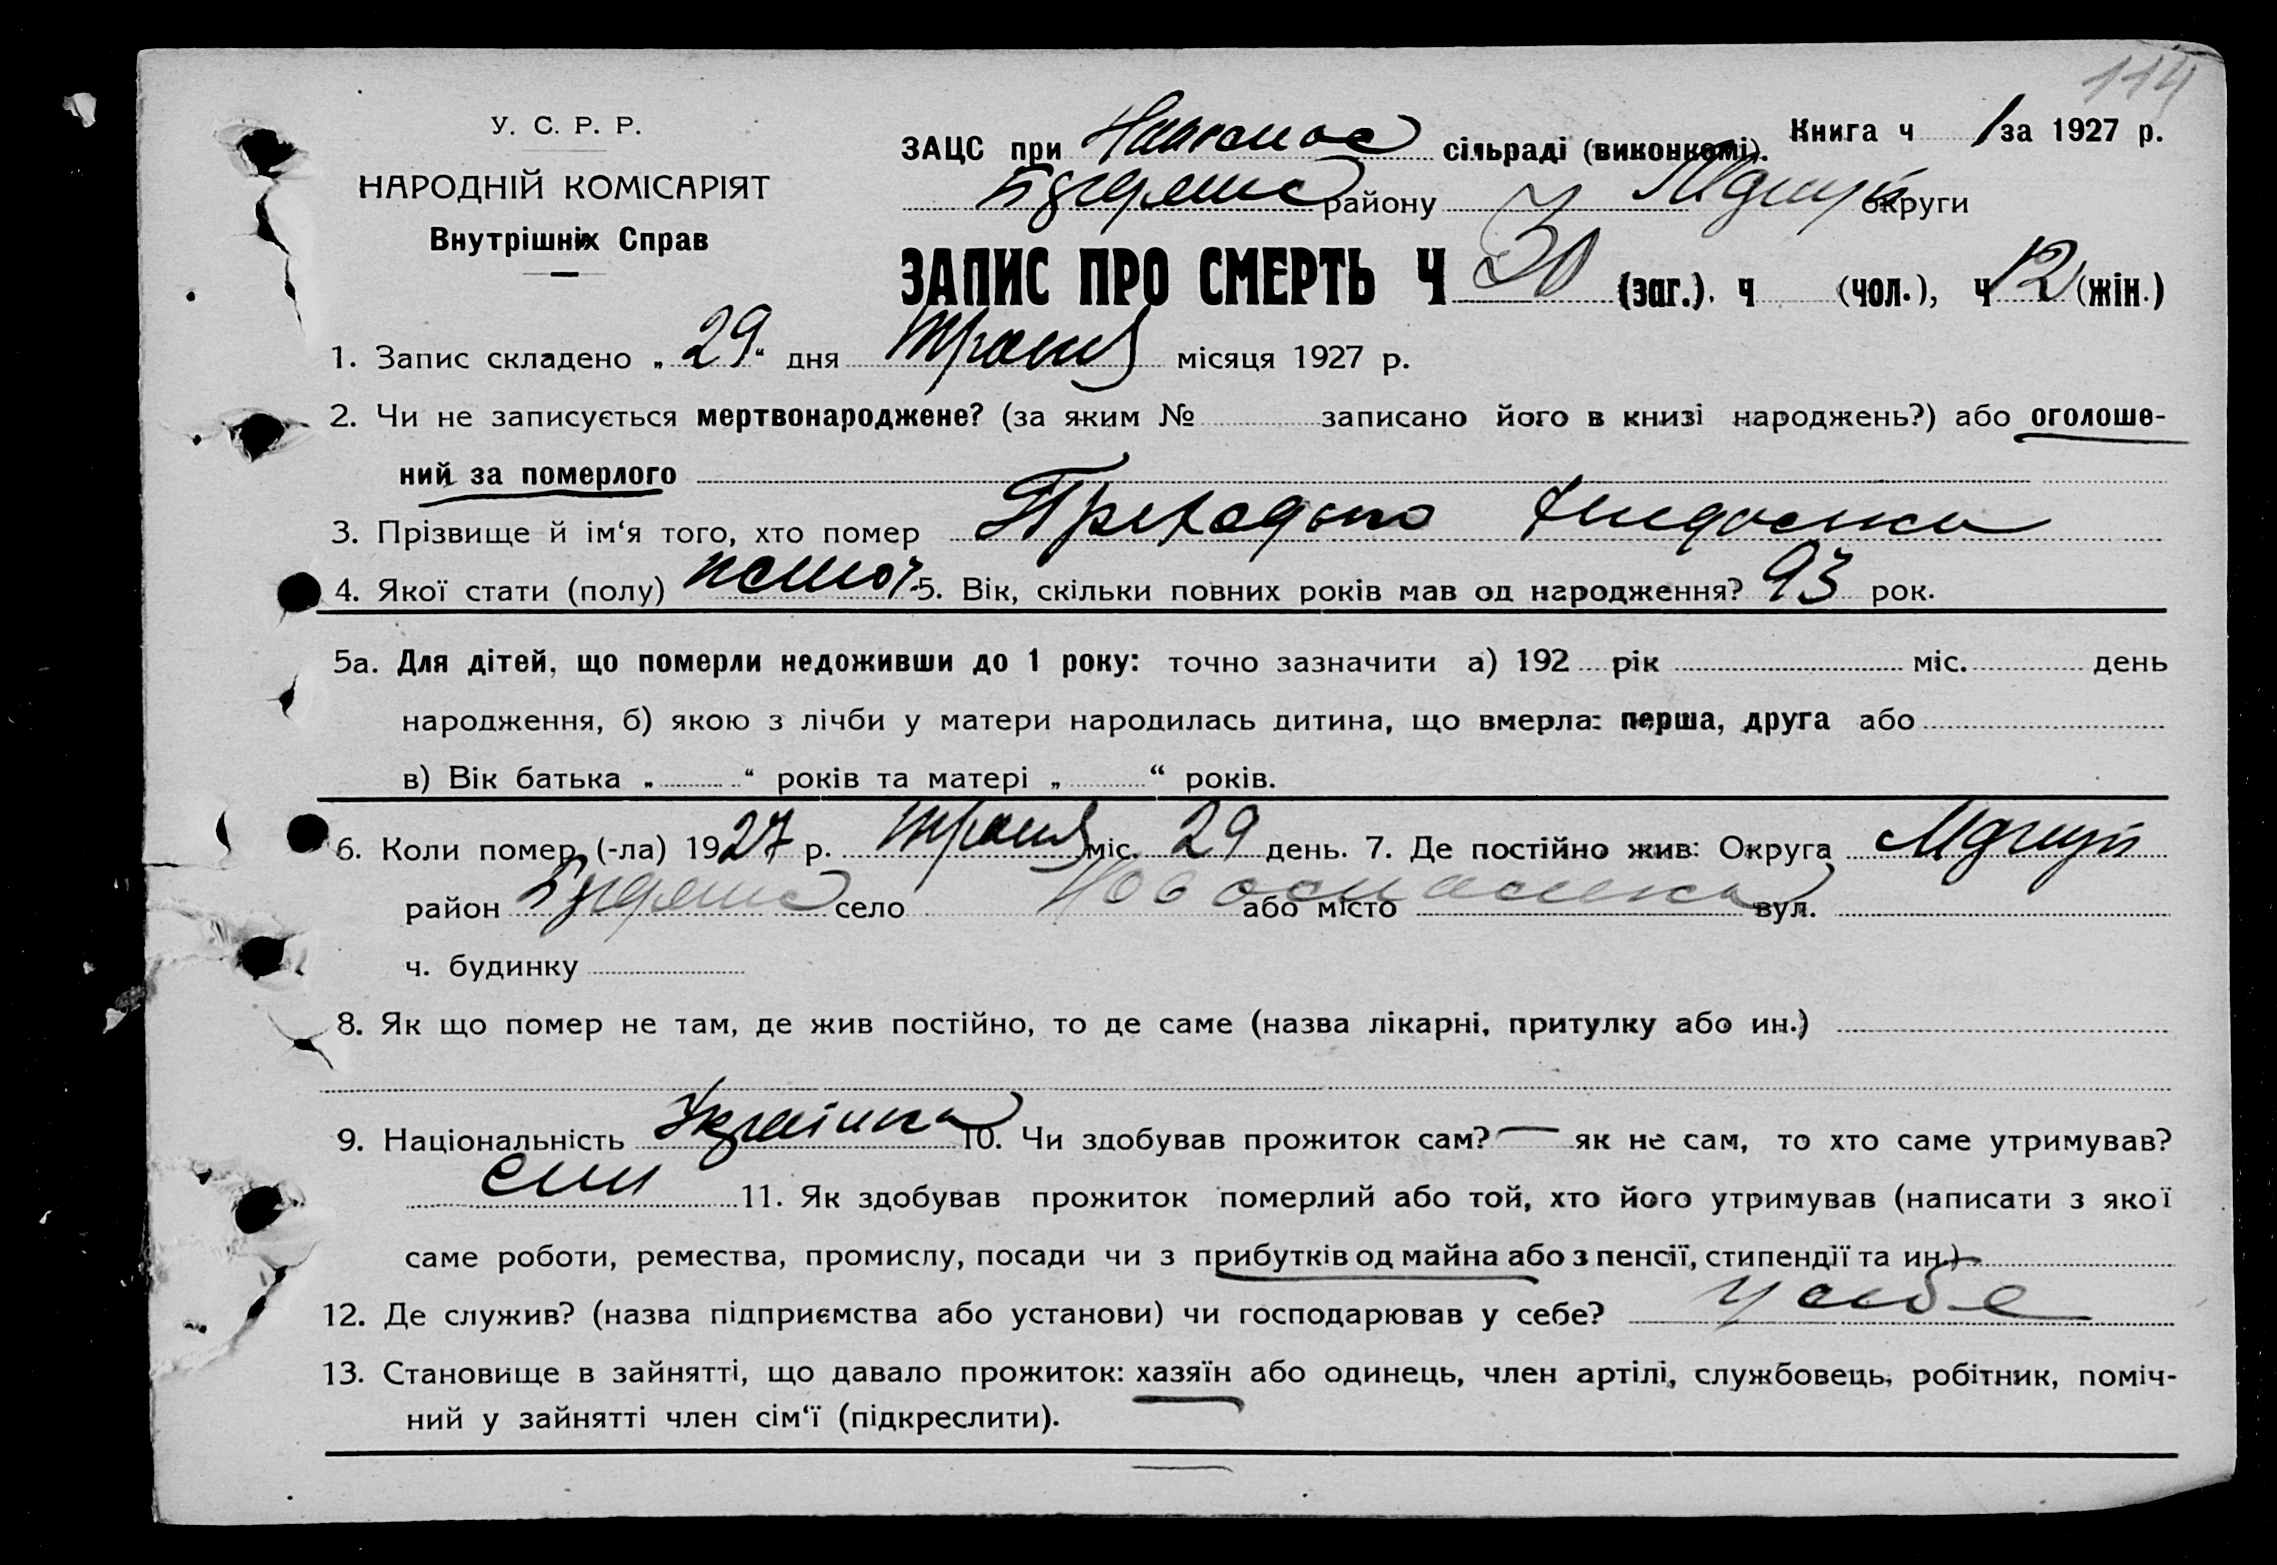 114
У. С. Р. Р.
НАРОДНІЙ КОМІСАРІЯТ
Внутрішніх Справ
Книга ч 1 за 1927 р.
ЗАЦС при сільраді (виконкомі).
району округи
ЗАПИС ПРО СМЕРТЬ Ч 30 (заг.). ч (чол.), ч 12 (жін.)
1. Запис складено „ 29 “ дня Травня місяця 1927 р.
2. Чи не записується мертвонароджене? (за яким № записано його в книзі народжень?) або оголоше-
ний за померлого
3. Прізвище й ім‘я того, хто помер Приходько
4. Якої стати (полу) 5. Вік, скільки повних років мав од народження? 93 рок.
5а. Для дітей, що померли недоживши до 1 року: точно зазначити а) 192 рік міс. день
народження, б) якою з лічби у матери народилась дитина, що вмерла: перша, друга або
в) Вік батька „ “ років та матері „ “ років.
6. Коли помер (-ла) 1927 р. Травня міс. 29 день. 7. Де постійно жив: Округа
район село або місто вул.
ч. будинку
8. Як що помер не там, де жив постійно, то де саме (назва лікарні, притулку або ин.)
9. Національність Українка 10. Чи здобував прожиток сам? — як не сам, то хто саме утримував?
син 11. Як здобував прожиток померлий або той, хто його утримував (написати з якої
саме роботи, ремества, промислу, посади чи з прибутків од майна або з пенсії, стипендії та ин.)
12. Де служив? (назва підприємства або установи) чи господарював у себе? у себе
13. Становище в зайнятті, що давало прожиток: хазяїн або одинець, член артілі, службовець, робітник, поміч-
ний у зайнятті член сім‘ї (підкреслити).